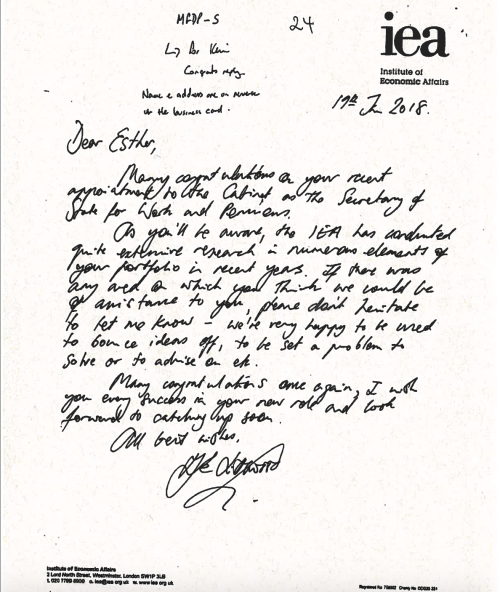 24
iea
Institute of
Economic Affairs
Congrats reply.
Name & address are on reverse
of the business card.
2018.
Dear Esther,
Many congratulations on your recent
appointment to the Cabinet as the Secretary of
State for Work and Pensions.
As you'll be aware, the IEA has conducted
quite extensive research in numerous elements of
your portfolio in recent years. If there was
any area on which you think we could be
of assistance to you, please don't hesitate
to let me know - we're very happy to be used
to bounce ideas off, to be set a problem to
solve or to advise on etc.
Many congratulations once again, I wish
you every success in your new role and look
forward to catching up soon.
All best wishes,
Institute of Economic Affairs
2 Lord North Street, Westminster, London SW1P 3LB